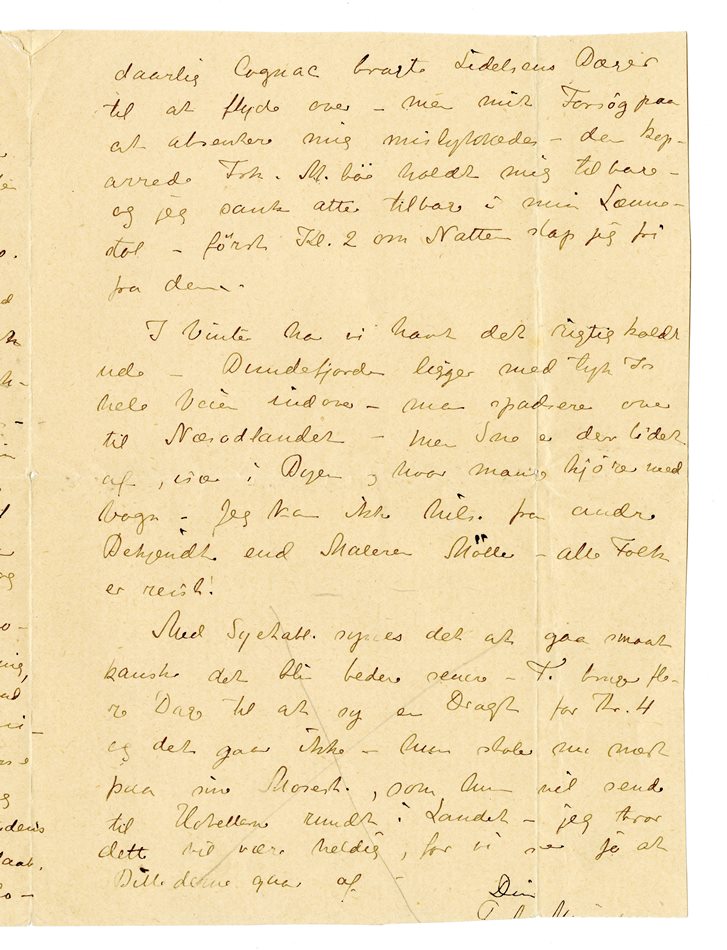 daarlig Cognac bragte Lidelsens Bæger
til at flyde over – men mit Forsøg paa
at absentere mig mislykkedes – den kop-
arrede Frk. M. holdt mig tilbage –
og jeg sank atter tilbage i min Læne-
stol – först Kl. 2 om Natten slap jeg fri
fra dem.
I Vinter har vi havt det rigtig koldt
ude – Bundefjorden ligger med tyk Is
hele Veien indover – man spadserer over
til Næsodlandet – men Sne er der lidet
af, især i Byen, hvor mange kjører med
Vogn – Jeg kan ikke hilse fra andre
Bekjendte end Maleren – alle Folk
er reist!
Med Syetabl. synes det at gaa smaat
kanske det blir bedre senere – T. bruger fle-
re Dage til at sy en Dragt for Kr. 4
og det gaar ikke – hun stoler nu mest
paa sine , som hun vil send
til Hotellerne rundt i Landet – jeg tror
dette vil være heldig, for vi ser jo at
Billederne gaar af –
Din